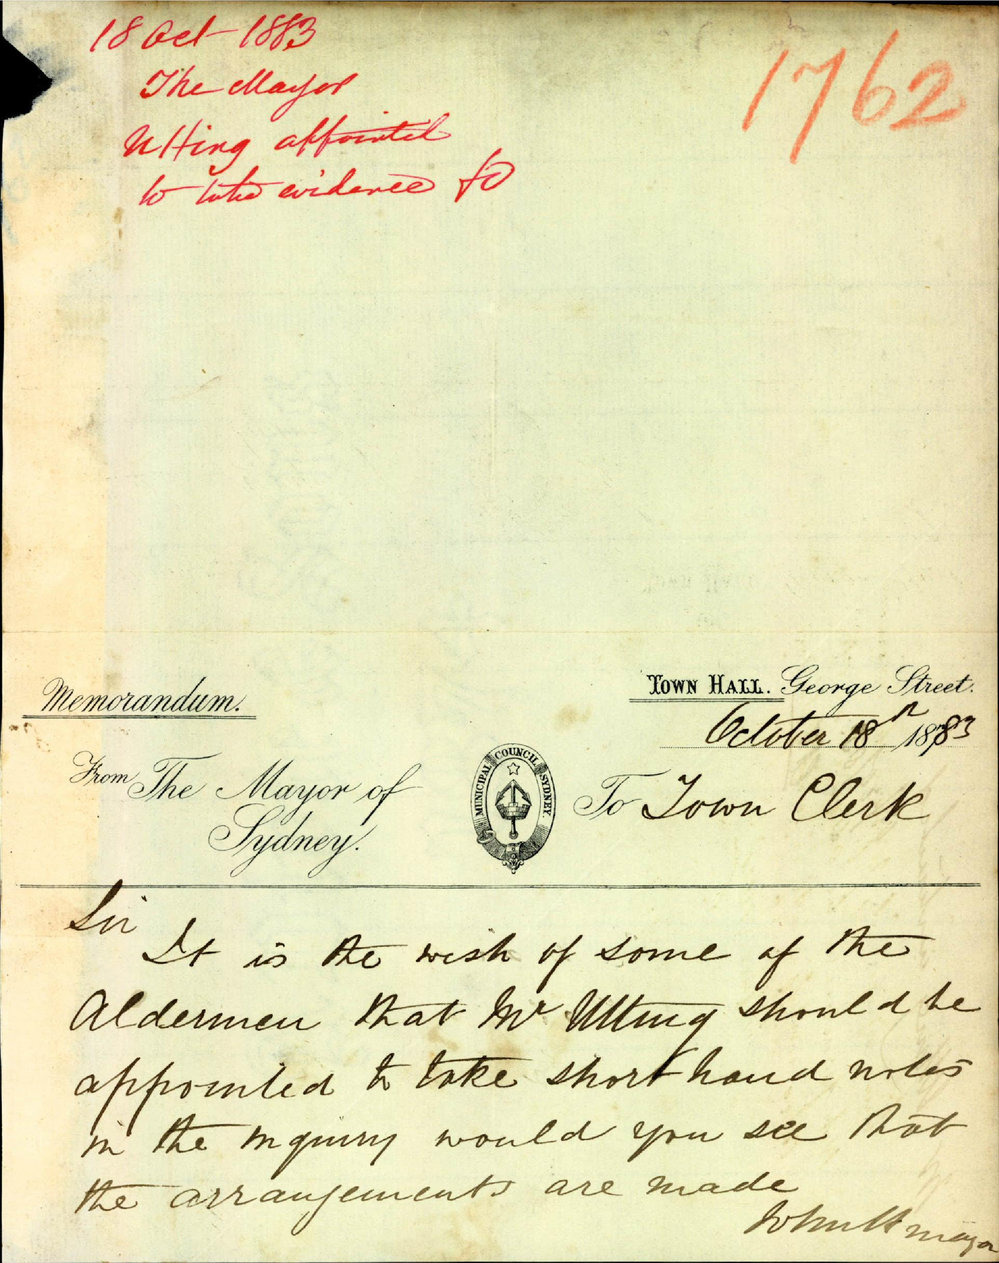 18 Oct 1883
The Mayor
Utting appointed
to take evidence &c
1762
Memorandum.
TOWN HALL. George Street.
October 18th 1883
From The Mayor of
Sydney.
MUNICIPAL COUNCIL SYDNEY.
To Town Clerk
Sir
It is the wish of some of the
Aldermen that Mr Utting should be
appointed to take short hand notes
in the inquiry would you see that
the arrangements are made
John H mayor